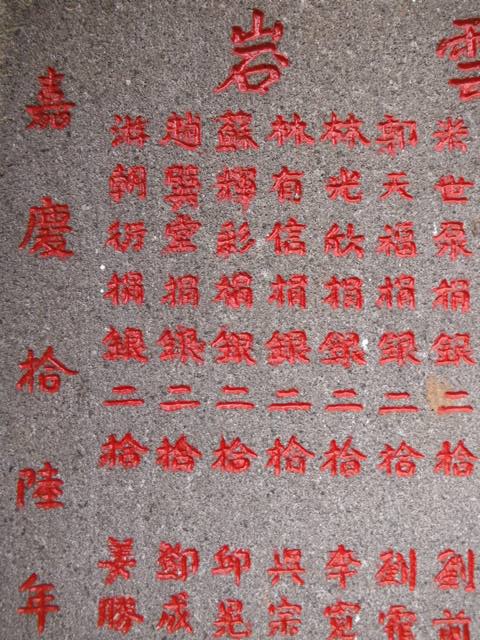 雲岩
朱世眾捐銀二拾
郭天福捐銀二拾
林光欣捐銀二拾
林有信捐銀二拾
蘇輝彩捐銀二拾
趙巽堂捐銀二拾
游朝衍捐銀二拾
劉前
劉
李寬
吳宗
邱晃
鄭成
姜勝
嘉慶拾陸年